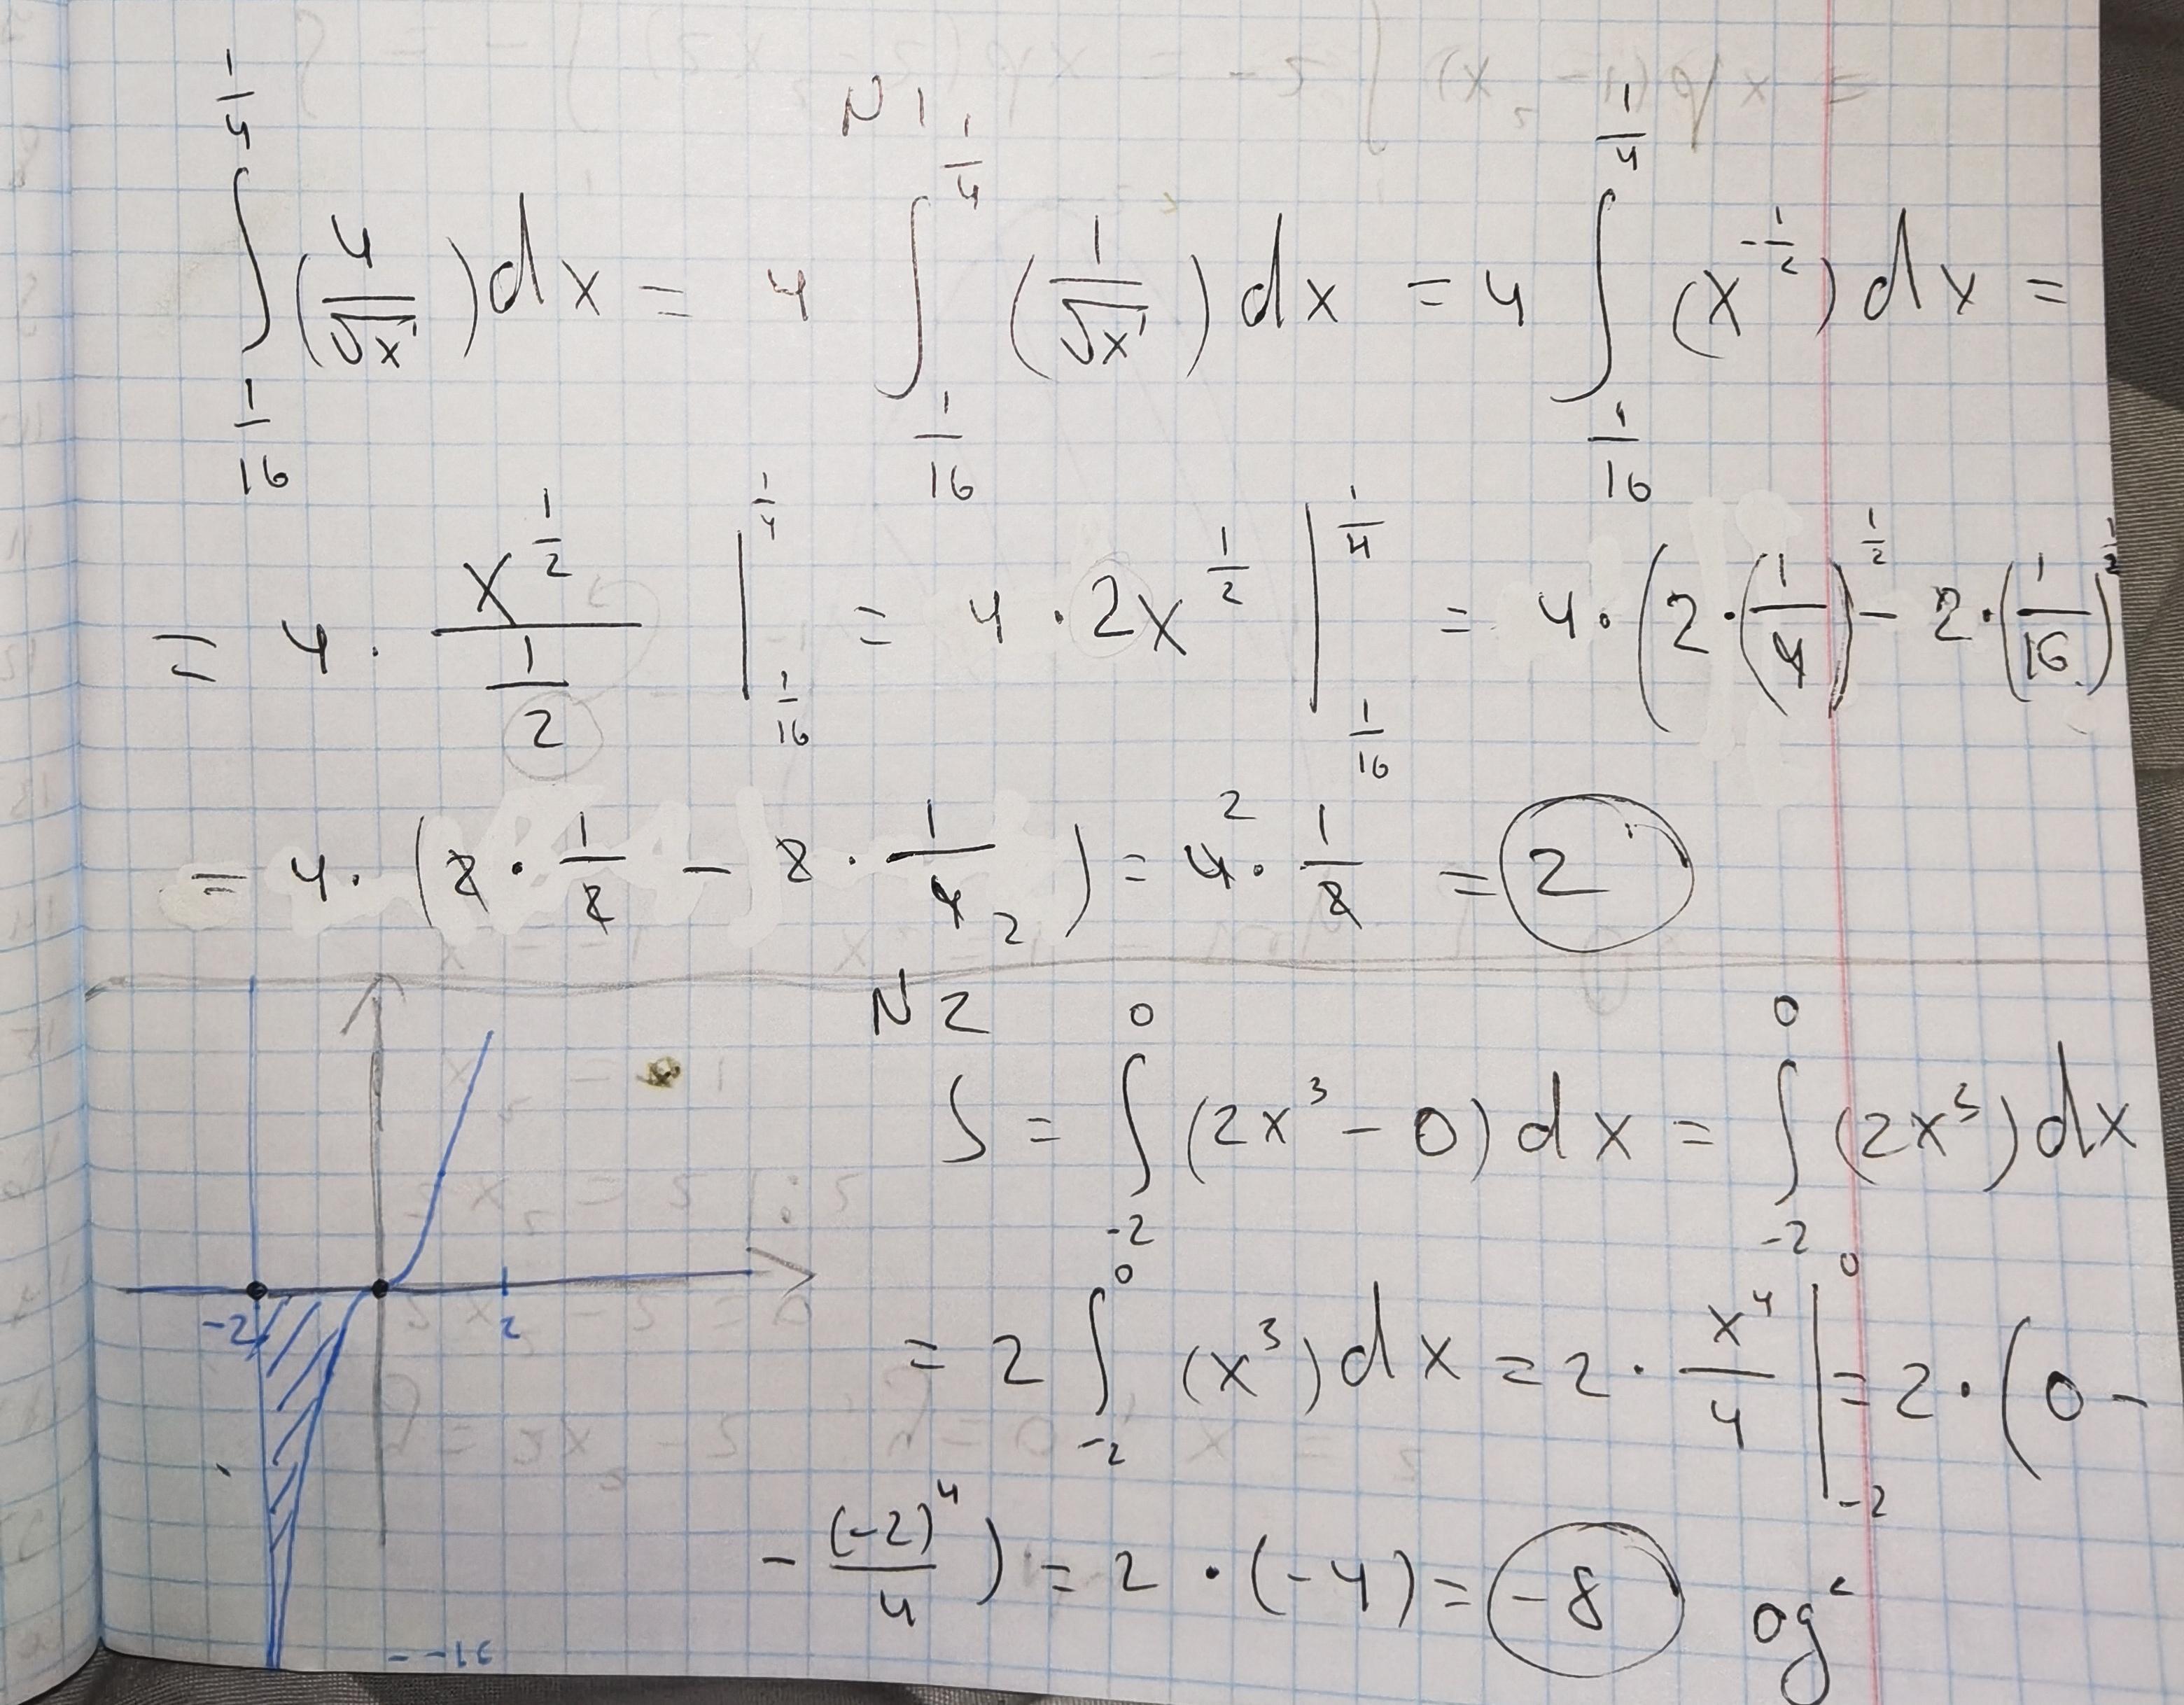 N1
∫_{1/16}^{1/4} (4/√x) dx = 4 ∫_{1/16}^{1/4} (1/√x) dx = 4 ∫_{1/16}^{1/4} (x^{-1/2}) dx =
= 4 · x^{1/2}/(1/2) |_{1/16}^{1/4} = 4 · 2x^{1/2} |_{1/16}^{1/4} = 4 · (2 · (1/4)^{1/2} - 2 · (1/16)^{1/2}
= 4 · (2 · 1/2 - 2 · 1/4 2) = 4 2 · 1/2 = 2
N2
S = ∫_{-2}^{0} (2x³ - 0) dx = ∫_{-2}^{0} (2x³) dx
-2 2
= 2 ∫_{-2}^{0} (x³) dx = 2 · x⁴/4 |_{-2}^{0} = 2 · (0 -
- (-2)⁴/4) = 2 · (-4) = -8 ед²
-16